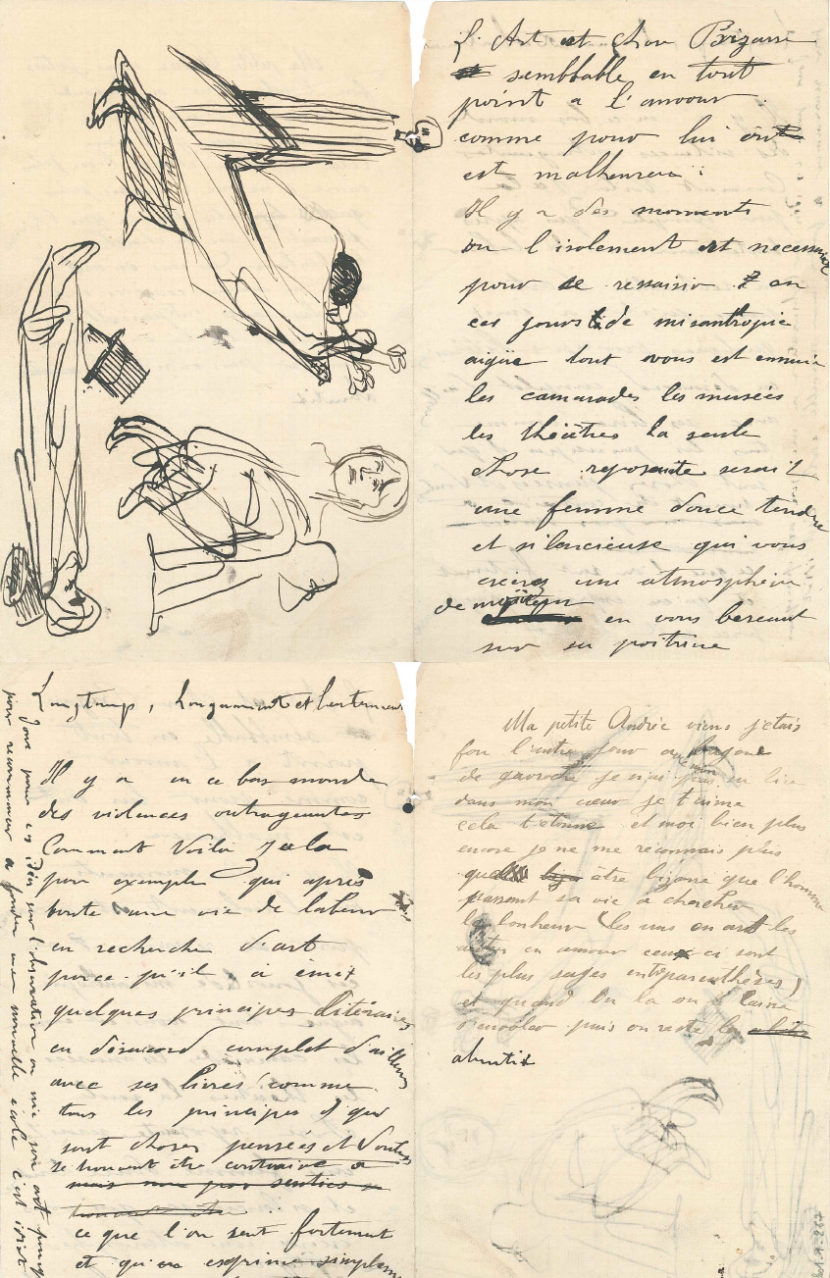 L'Art est chose Bizarre
semblable en tout
point a l'amour.
comme pour lui on
est malheureux
Il y a des moments
ou l'isolement est necessaire
pour se ressaisir en
ces jours de misantropie
aigüe tout vous est ennuie
les camarades les musées
les théâtres la seule
chose reposante serait
une femme douce tendre
et silencieuse qui vous
une atmosphère
de en vous berceant
sur sa poitrine
Longtemp, Longuement et
Il y a en ce bas monde
des violences outrageantes
Comment Voila Zola
par exemple qui après
toute une vie de labeur
en recherche d'art
parce-qu'il a émit
quelques principes litéraires
en désacord complet d'ailleurs
avec ses livres comme
tous les principes
sont choses pensées et
se trouvant être contraire a
mais non pas senties
ce que l'on sent fortement
et qu'on exprime simplement
pour ces idées sur l'observation on nie son art
pour recommencer a fonder une nouvelle école c'est
Ma petite Andrée viens j'etais
fou l'autre jour
de je
dans mon cœur je t'aime
cela t'étonne et moi bien plus
encore je ne me reconnais plus
quel être bizare que l'homme
passant sa vie a chercher
le bonheur (les uns en art les
autres en amour ceux ci sont
les plus sages entre parenthèses)
et quand on l'a on
puis on reste la
abrutit